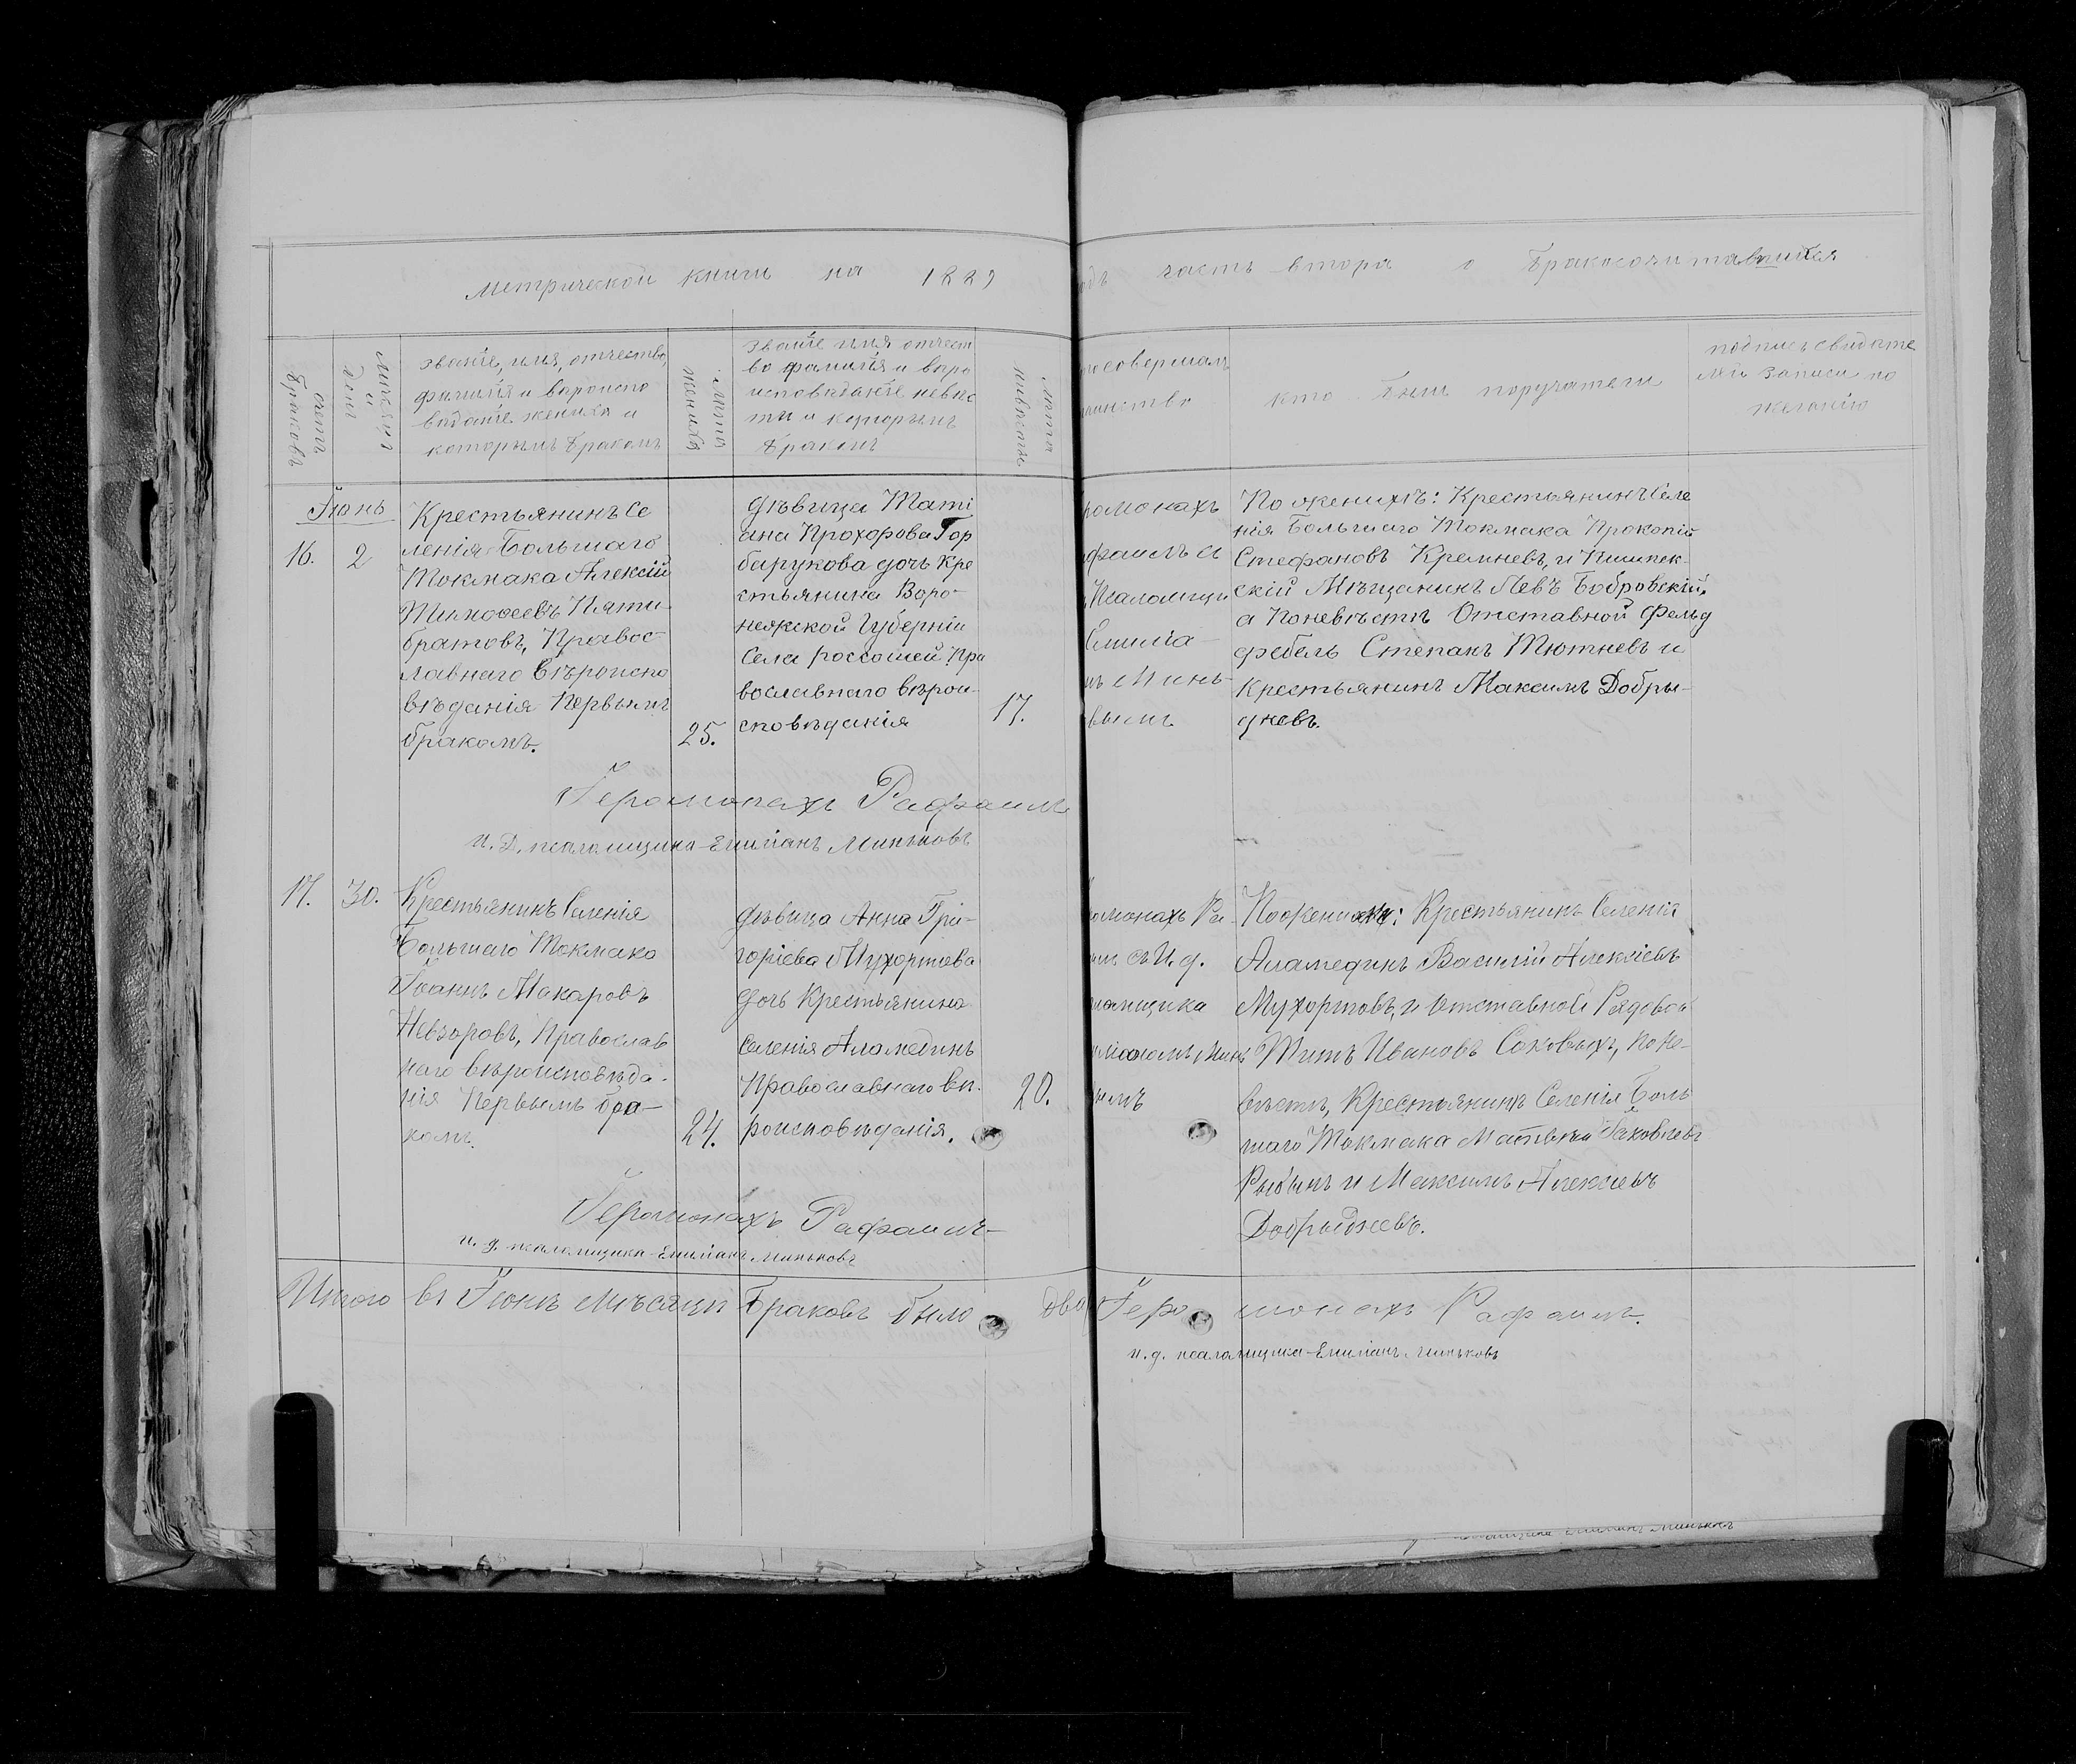 Метрической книги на 1889
одъ часть втора о бракосочитавшихся
счетъ браковъ
Мѣсяцъ и день
званіе, имя, отчество,
фамилія и вѣроиспо
вѣданіе жениха и
которымъ бракомъ
лѣта жениха
званіе имя отчест
во фамилія и вѣро
исповѣданіе невѣс
ты и которымъ
бракомъ
лѣта невѣсты
то совершалъ
таинство
кто были поручатели
подпись свидѣте
лей записи по
желанію
Іюнь
16. 2
Крестьянинъ Се
ленія Большаго
Токмака Алексій
Тимофеевъ Пяти-
братовъ, Правос-
лавнаго вѣроиспо
вѣданія Первымъ
бракомъ.
25.
Дѣвица Таті
ана Прохорова Гор
барукова дочь Кре
стьянина Воро-
нежской Губерніи
Села россошей Пра
вославнаго вѣрои-
сповѣданія
17.
ромонахъ
фаилъ и
Псаломщи
Емиліа-
нъ Минь-
вымъ
По женихѣ: Крестьянинъ Селе
нія Большаго Токмака Прокопій
Стефановъ Кремневъ, и Пишпек-
скій Мѣщанинъ Левъ Бобровскій,
а Поневѣстѣ Отставной Фельд
фебель Степанъ Тютневъ и
Крестьянинъ Максимъ Добры-
дневъ.
Іеромонахъ Рафаилъ
и. д. псаломщика Емиліанъ Миньковъ
17. 30.
Крестьянинъ Селенія
Большаго Токмака
Іоаннъ Макаровъ
Невзоровъ, Православ
наго вѣроисповѣда-
нія Первымъ бра-
комъ.
24.
Дѣвица Анна Гри-
горіева Мухортова
дочь Крестьянина
Селенія Аламединъ
Православнаго вѣ-
роисповѣданія.
20.
омонахъ Ра-
илъ съ И. д.
ломщика
Минь
нымъ
Поженихѣ: Крестьянинъ Селенія
Аламединъ Василій Алексіевъ
Мухортовъ, и Отставной Рядовой
Титъ Ивановъ Соковыхъ, по Не-
вѣстѣ, Крестьянинъ Селенія Боль
шаго Токмака Матвѣй Іаковлевъ
Рыбинъ и Максимъ Алексіевъ
Добрыдневъ.
Іеромонахъ Рафаилъ
и. д. псаломщика Емиліанъ Миньковъ
Итого въ Іюнѣ мѣсяцѣ Браковъ было два Іеромонахъ Рафаилъ.
и. д. псаломщика Емиліанъ Миньковъ
Емиліанъ Миньковъ